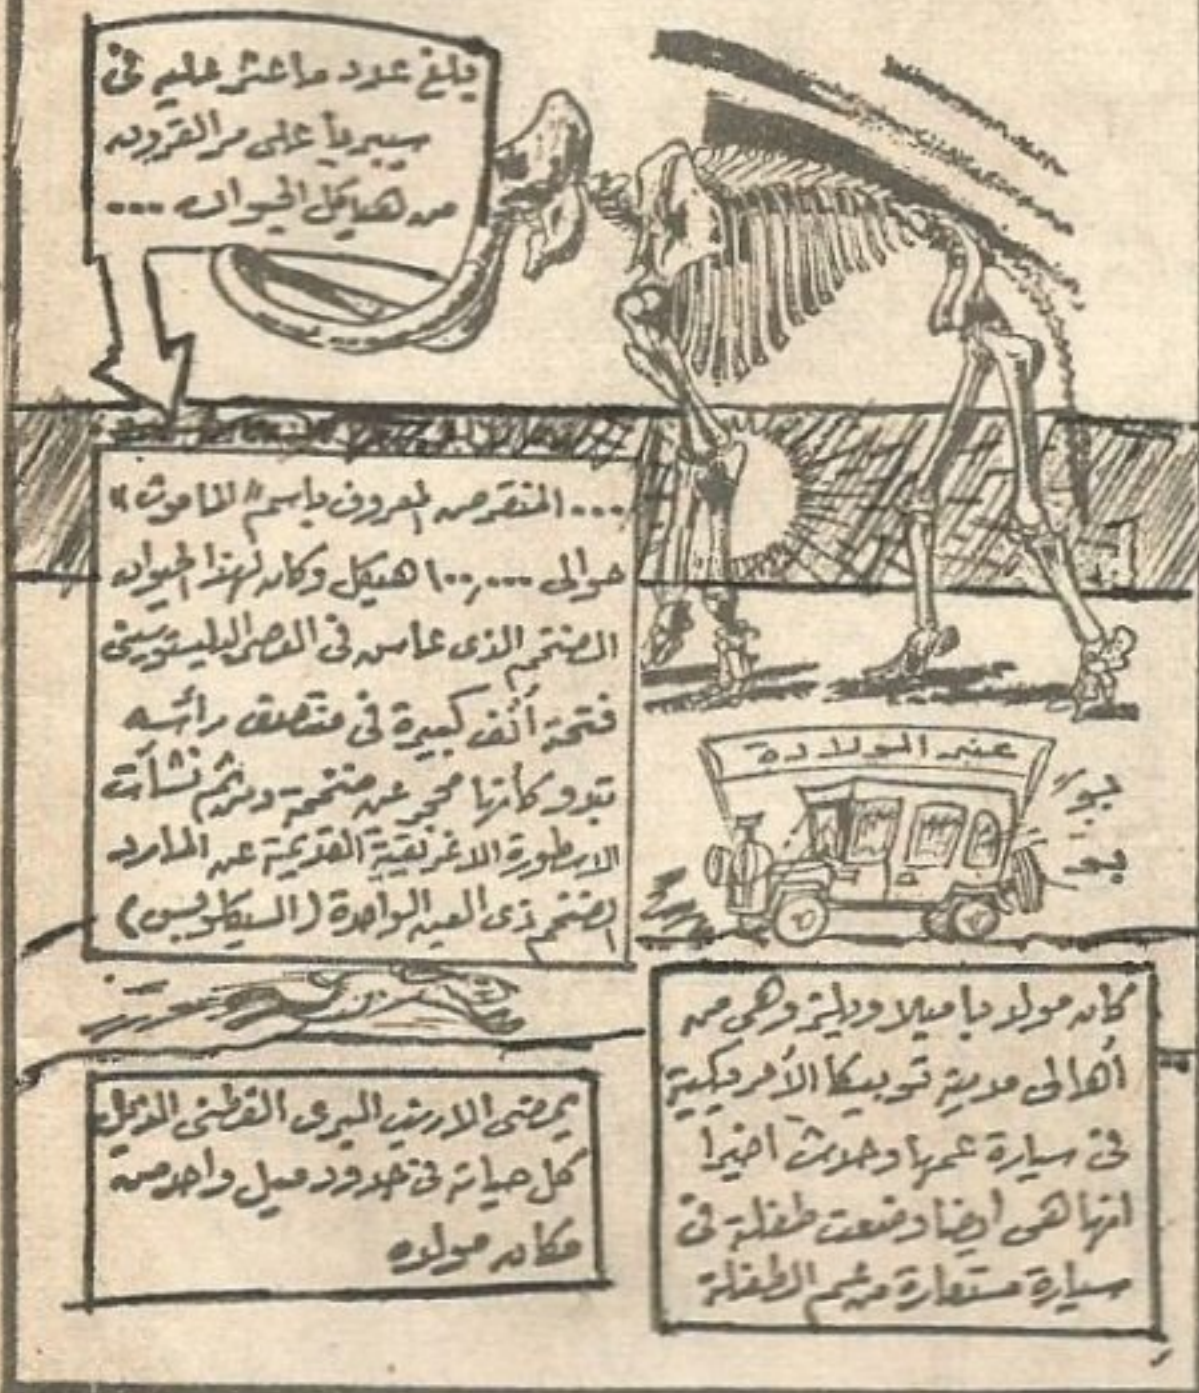 يبلغ عدد ما عثر عليه فى
سيبريا على مر القرون
من هياكل الحيوان ...
... المنقرض المعروف باسم "الماموث"
حوالى ١٠٠,٠٠٠ هيكل وكان لهذا الحيوان
الضخم الذى عاش فى العصر البليستوسينى
فتحة أنف كبيرة فى منتصف رأسه
تبدو كأنها محجر عين ضخمة ومن ثم نشأت
الاسطورة الاغريقية القديمة عن المارد
الضخم ذى العين الواحدة (السيكلوبس)
عنبر الولادة
كان مولد باميلا ويليز وهى من
أهالى مدينة توبيكا الأمريكية
فى سيارة عمها وحدث اخيرا
انها هى ايضا وضعت طفلة فى
سيارة مستعارة من عم الطفلة
يمضى الارنب البرى القطنى الذيل
كل حياته فى حدود ميل واحد من
مكان مولده